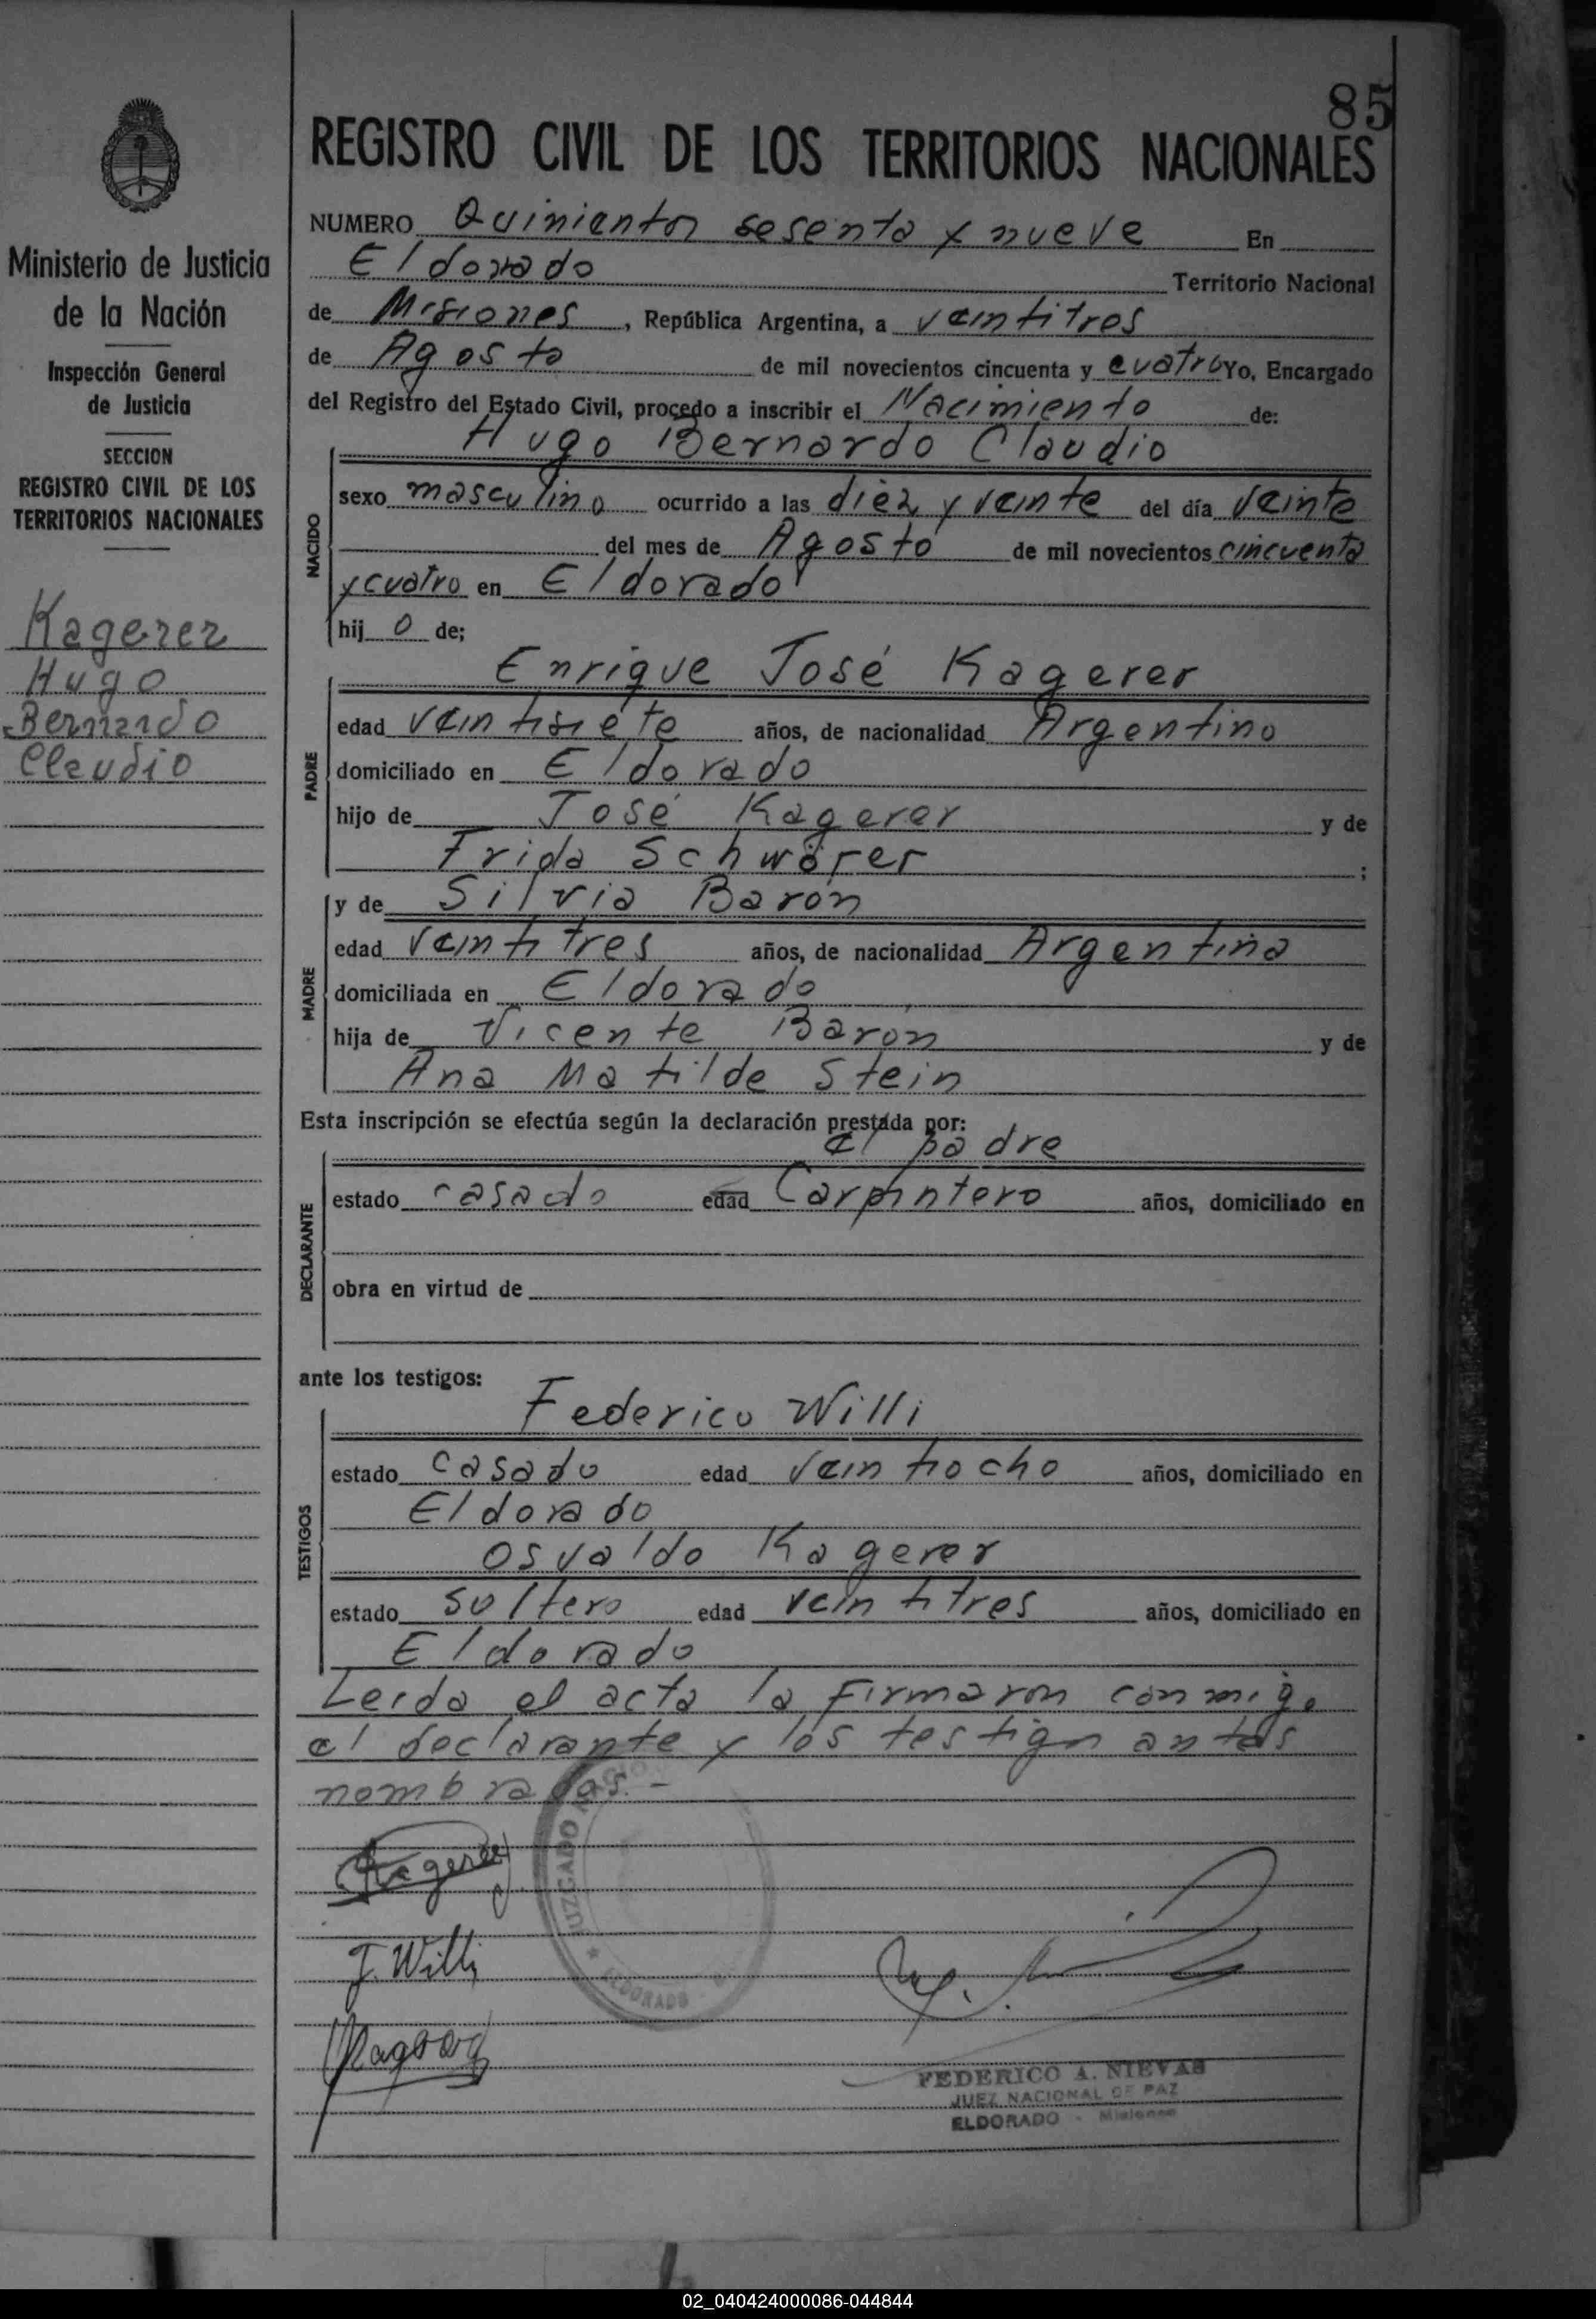 85
REGISTRO CIVIL DE LOS TERRITORIOS NACIONALES
Ministerio de Justicia
de la Nación
Inspección General
de Justicia
SECCION
REGISTRO CIVIL DE LOS
TERRITORIOS NACIONALES
Kagerer
Hugo
Bernardo
Claudio
NUMERO Quinientos sesenta y nueve En
Eldorado Territorio Nacional
de Misiones, República Argentina, a veintitres
de Agosto de mil novecientos cincuenta y cuatro Yo, Encargado
del Registro del Estado Civil, procedo a inscribir el Nacimiento de:
NACIDO
Hugo Bernardo Claudio
sexo masculino ocurrido a las diez y veinte del día veinte
del mes de Agosto de mil novecientos cincuenta
y cuatro en Eldorado
hij o de;
PADRE
Enrique José Kagerer
edad veintisiete años, de nacionalidad Argentino
domiciliado en Eldorado
hijo de José Kagerer y de
Frida Schwörer ;
MADRE
y de Silvia Barón
edad veintitres años, de nacionalidad Argentina
domiciliada en Eldorado
hija de Vicente Barón y de
Ana Matilde Stein
Esta inscripción se efectúa según la declaración prestada por:
DECLARANTE
el padre
estado casado edad Carpintero años, domiciliado en
obra en virtud de
ante los testigos:
TESTIGOS
Federico Willi
estado casado edad veintiocho años, domiciliado en
Eldorado
Osvaldo Kagerer
estado soltero edad veintitres años, domiciliado en
Eldorado
Leida el acta la firmaron conmigo
el declarante y los testigos antes
nombrados.-
Kagerer
JUZGADO
ELDORADO
F. Willi
Kagerer
FEDERICO A. NIEVAS
JUEZ NACIONAL DE PAZ
ELDORADO - Misiones
02_040424000086-044844